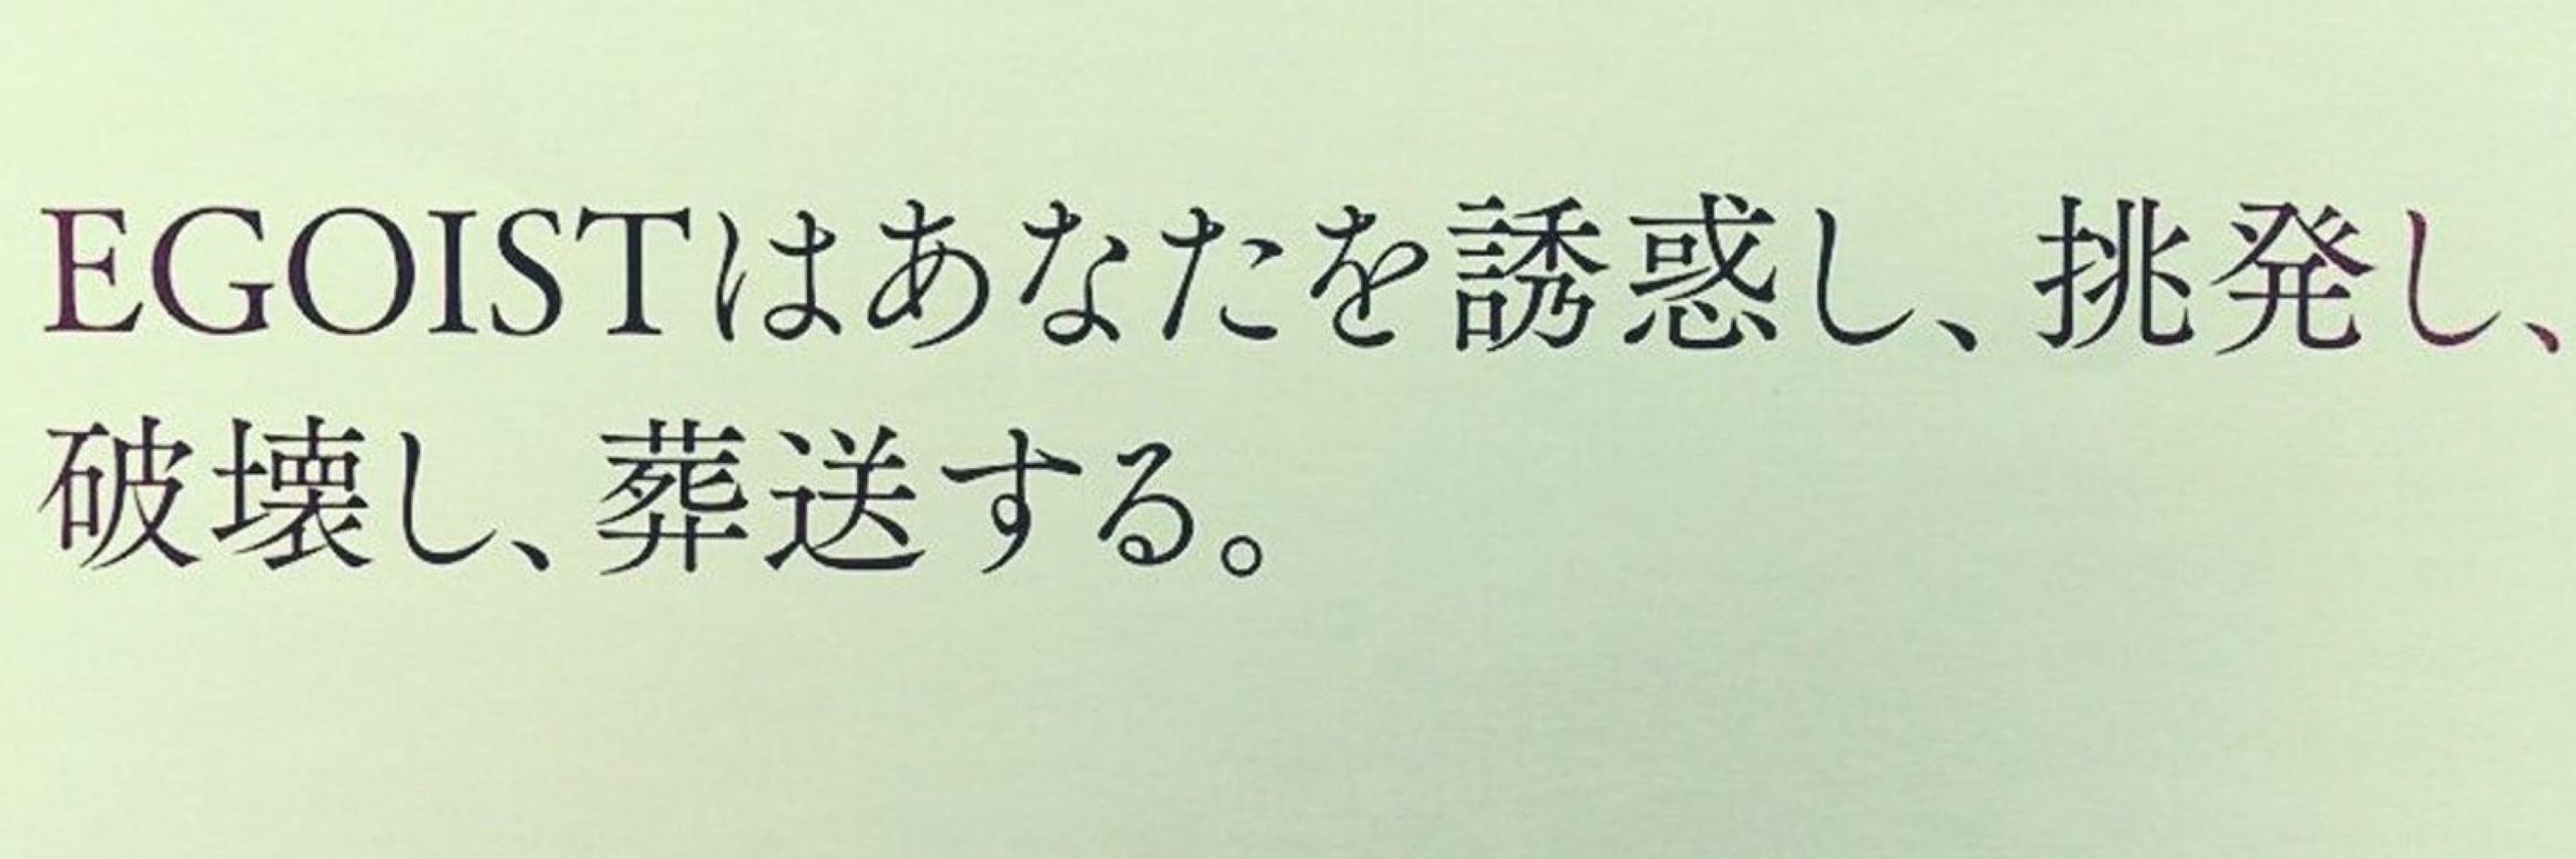 EGOISTはあなたを誘惑し、挑発し、
破壊し、葬送する。